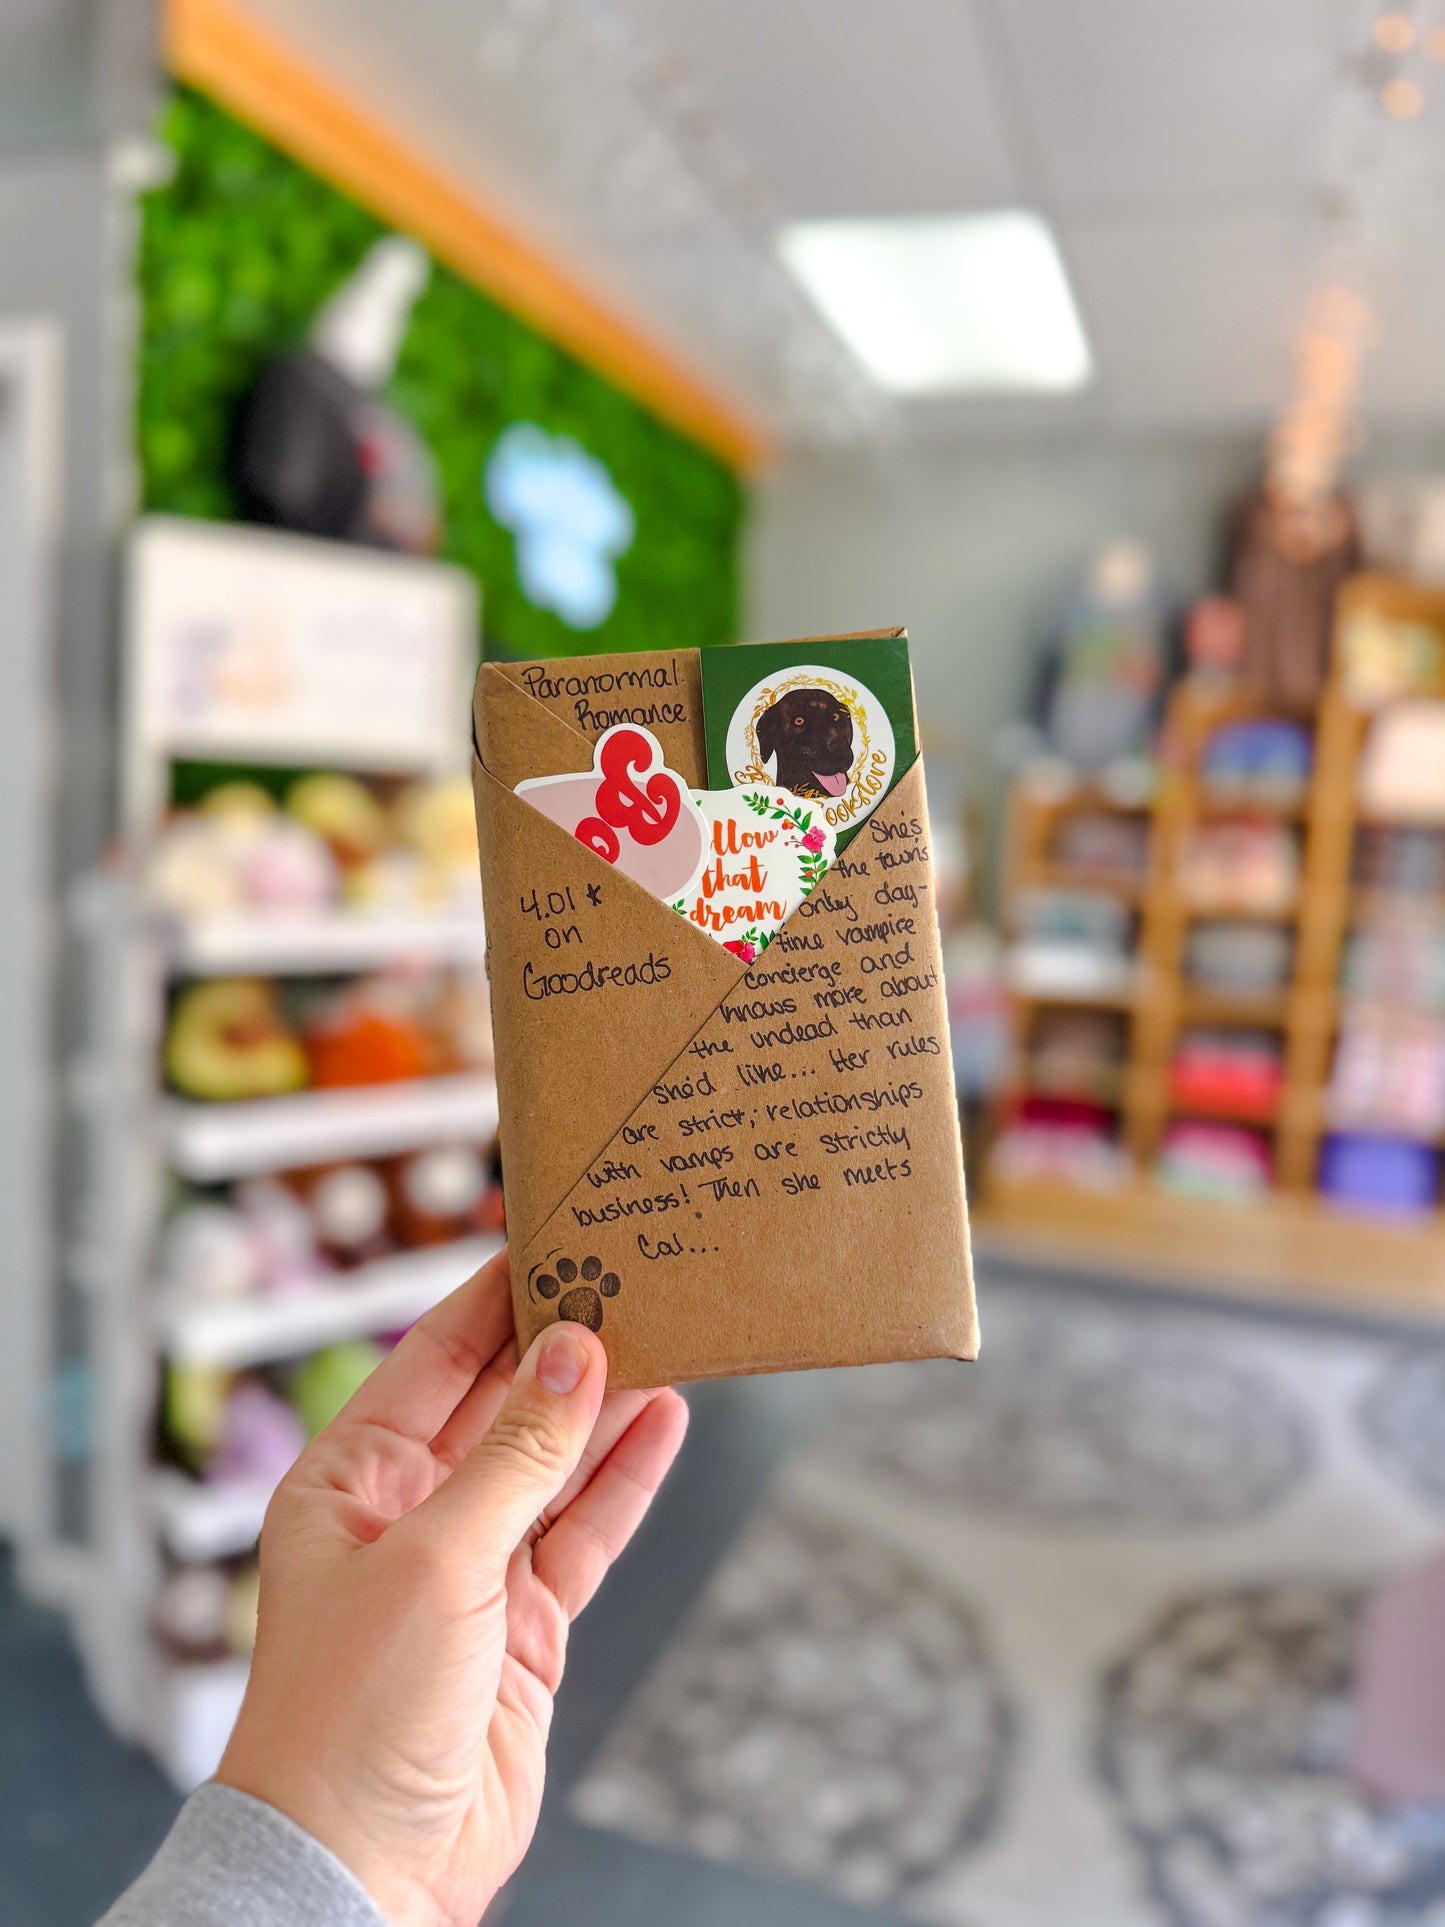 Paranormal
Romance
Bo
llow
that
dream
ookstore
4.01 *
on
Goodreads
She's
the town's
only day-
time vampire
concierge and
knows more about
the undead than
she'd like... Her rules
are strict; relationships
with vamps are strictly
business! Then she meets
Cal...